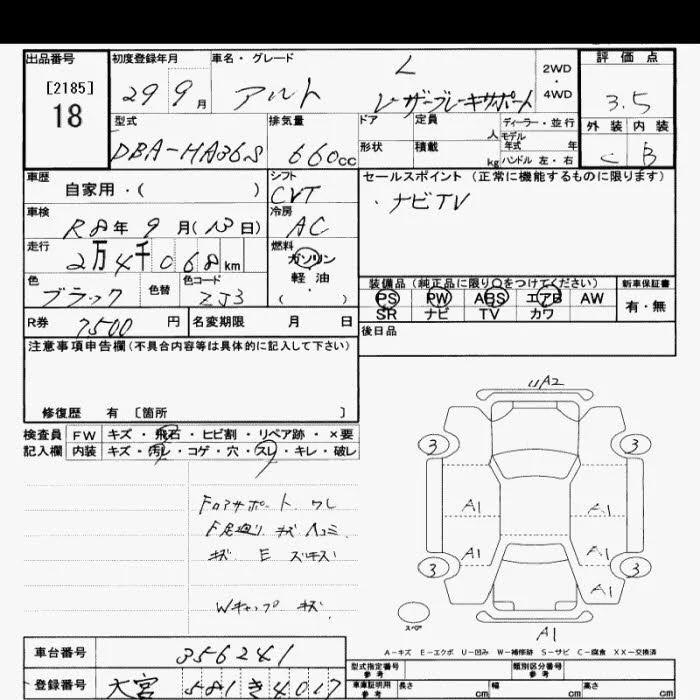 出品番号
[2185]
18
初度登録年月
29 9 月
車名・グレード
アルト
L
レーザーブレーキサポート
2WD
・
4WD
評価点
3.5
外装 内装
C B
型式
DBA-HA36S
排気量
660cc
ドア
形状
定員 人
積載 kg
ディーラー・並行
モデル
年式 年
ハンドル 左・右
車歴
自家用・( )
シフト
CVT
セールスポイント (正常に機能するものに限ります)
・ナビTV
車検
R8年 9月(13日)
冷房
AC
走行
2万4千068km
燃料
ガソリン
軽油
・
( )
色
ブラック
色替
色コード
ZJ3
装備品 (純正品に限り○をつけてください)
PS PW ABS エアB AW
SR ナビ TV カワ
新車保証書
有・無
R券 7500 円
名変期限 月 日
後日品
注意事項申告欄(不具合内容等は具体的に記入して下さい)
修復歴 有 [箇所 ]
検査員
記入欄
FW キズ・飛石・ヒビ割・リペア跡・×要
内装 キズ・汚レ・コゲ・穴・スレ・キレ・破レ
Fロアサポート ワレ
F足廻り キズ ヘコミ
キズ E ズキズ
Wキャップ キズ
UA2
3 3
A1 A1
A1 A1
3 3
A1
A1
スペア
A-キズ E-エクボ U-凹み W-補修跡 S-サビ C-腐食 XX-交換済
車台番号 356241
登録番号 大宮 581 き 4017
型式指定番号
参考
類別区分番号
参考
車庫証明用
参考
長さ cm
幅 cm
高さ cm